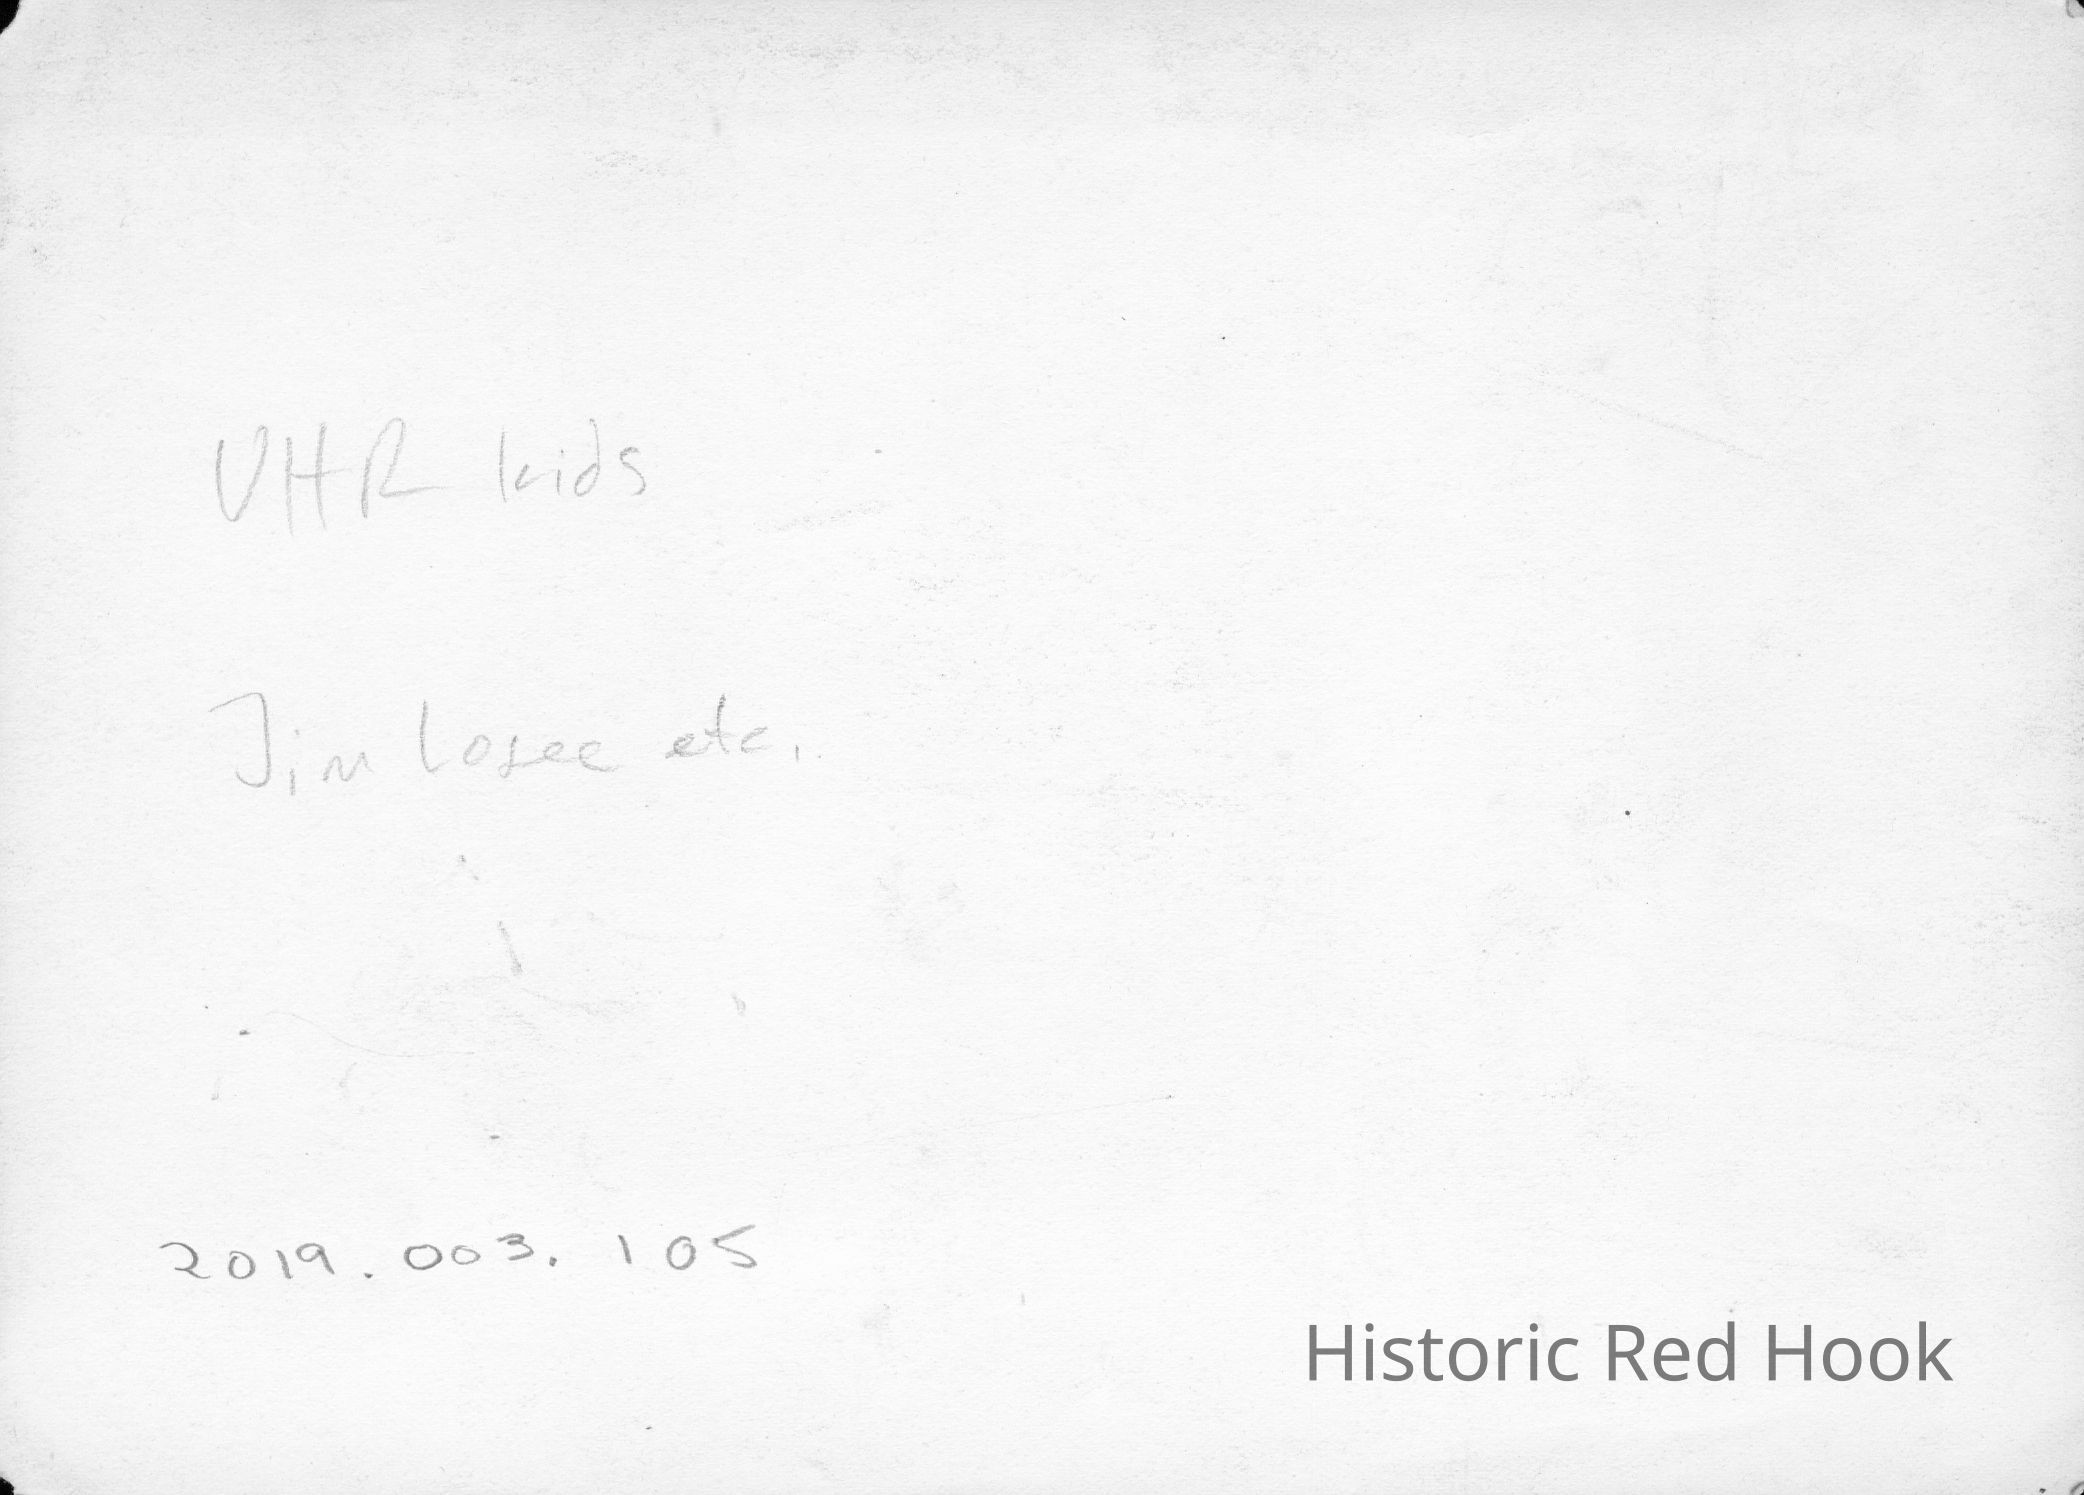 VHR kids
Jim Losee etc.
2019.003.105
Historic Red Hook